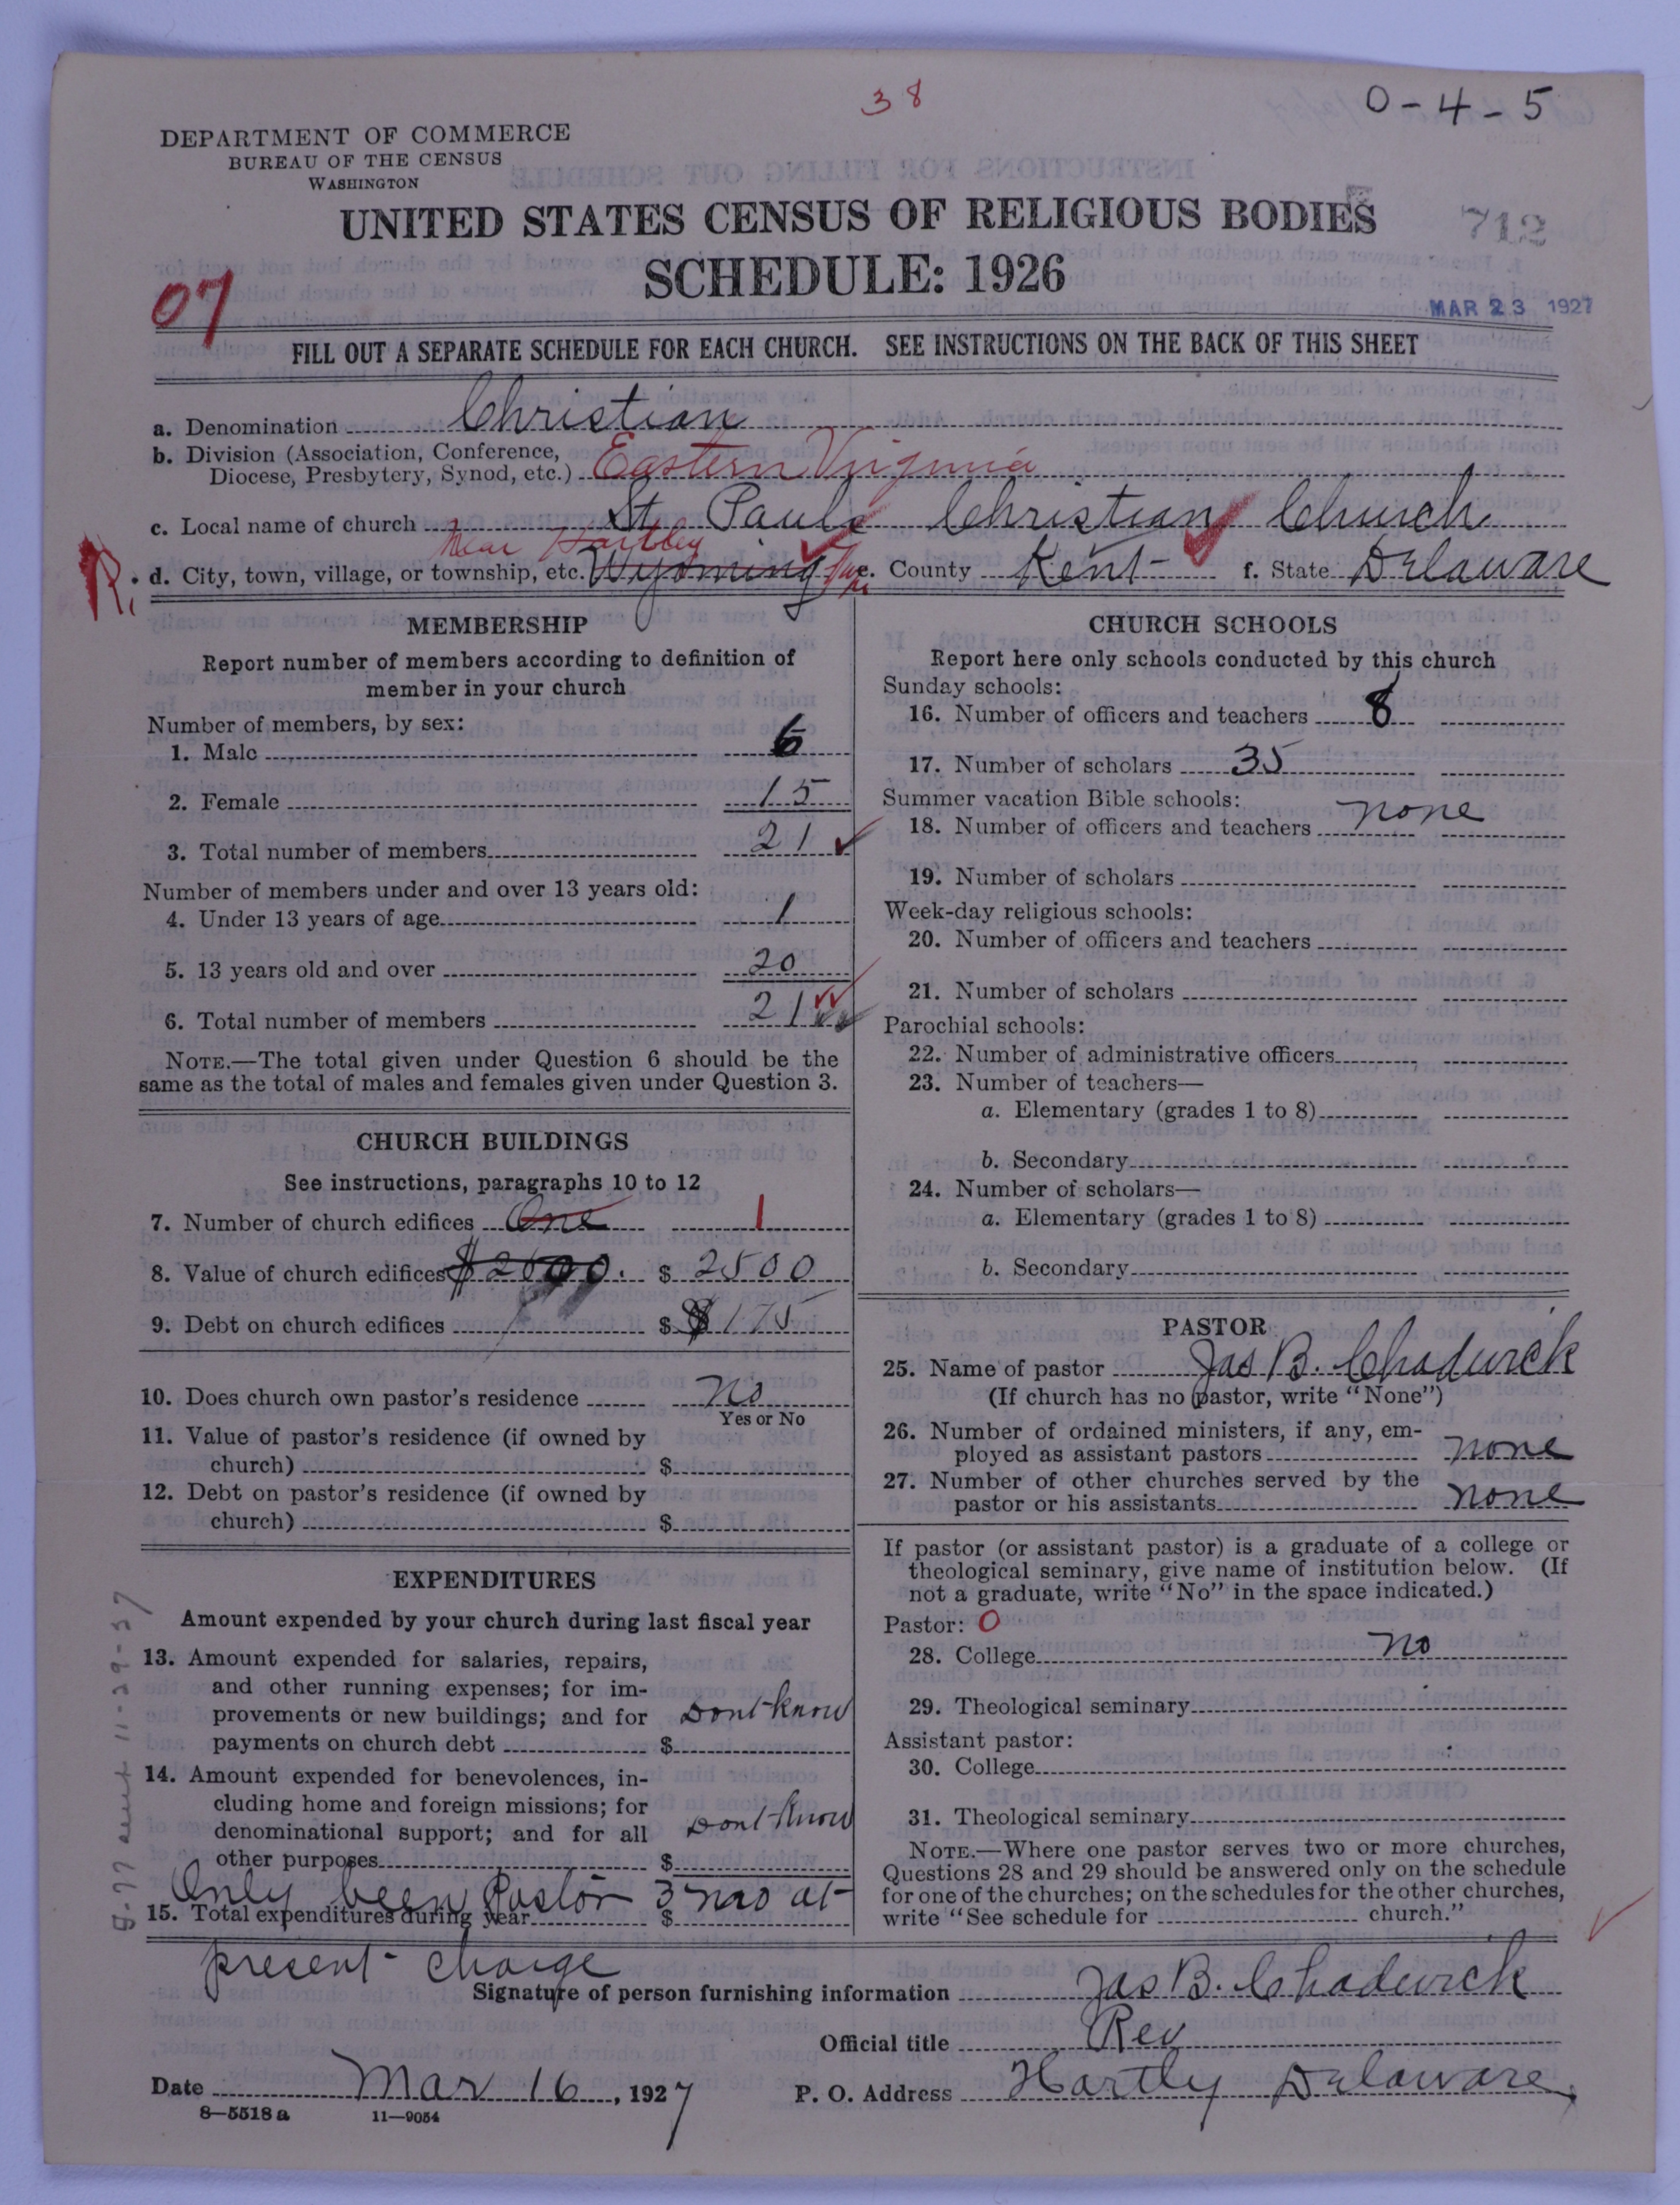 38
0-4-5
DEPARTMENT OF COMMERCE
BUREAU OF THE CENSUS
WASHINGTON
UNITED STATES CENSUS OF RELIGIOUS BODIES
712
SCHEDULE: 1926
07
MAR 23 1927
FILL OUT A SEPARATE SCHEDULE FOR EACH CHURCH. SEE INSTRUCTIONS ON THE BACK OF THIS SHEET
a. Denomination Christian
b. Division (Association, Conference,
Diocese, Presbytery, Synod, etc.) Eastern Virginia
c. Local name of church St Pauls Christian Church
near Hartley
R. d. City, town, village, or township, etc. Wyoming e. County Kent f. State Delaware
MEMBERSHIP
Report number of members according to definition of
member in your church
Number of members, by sex:
1. Male 6
2. Female 15
3. Total number of members 21
Number of members under and over 13 years old:
4. Under 13 years of age 1
5. 13 years old and over 20
6. Total number of members 21
NOTE.—The total given under Question 6 should be the
same as the total of males and females given under Question 3.
CHURCH BUILDINGS
See instructions, paragraphs 10 to 12
7. Number of church edifices One 1
8. Value of church edifices $ 2500
9. Debt on church edifices $ $175
10. Does church own pastor's residence no
Yes or No
11. Value of pastor's residence (if owned by
church) $
12. Debt on pastor's residence (if owned by
church) $
EXPENDITURES
Amount expended by your church during last fiscal year
13. Amount expended for salaries, repairs,
and other running expenses; for im-
provements or new buildings; and for Dont know
payments on church debt $
14. Amount expended for benevolences, in-
cluding home and foreign missions; for
denominational support; and for all Dont know
other purposes $
Only been Pastor 3 mo at
15. Total expenditures during year $
present charge
CHURCH SCHOOLS
Report here only schools conducted by this church
Sunday schools:
16. Number of officers and teachers 8
17. Number of scholars 35
Summer vacation Bible schools:
18. Number of officers and teachers none
19. Number of scholars
Week-day religious schools:
20. Number of officers and teachers
21. Number of scholars
Parochial schools:
22. Number of administrative officers
23. Number of teachers—
a. Elementary (grades 1 to 8)
b. Secondary
24. Number of scholars—
a. Elementary (grades 1 to 8)
b. Secondary
PASTOR
25. Name of pastor Jas B. Chadwick
(If church has no pastor, write "None")
26. Number of ordained ministers, if any, em-
ployed as assistant pastors none
27. Number of other churches served by the
pastor or his assistants none
If pastor (or assistant pastor) is a graduate of a college or
theological seminary, give name of institution below. (If
not a graduate, write "No" in the space indicated.)
Pastor: 0
28. College no
29. Theological seminary
Assistant pastor:
30. College
31. Theological seminary
NOTE.—Where one pastor serves two or more churches,
Questions 28 and 29 should be answered only on the schedule
for one of the churches; on the schedules for the other churches,
write "See schedule for church."
Signature of person furnishing information Jas B. Chadwick
Official title Rev
Date Mar 16, 1927 P. O. Address Hartly Delaware
8-5518 a 11-9054